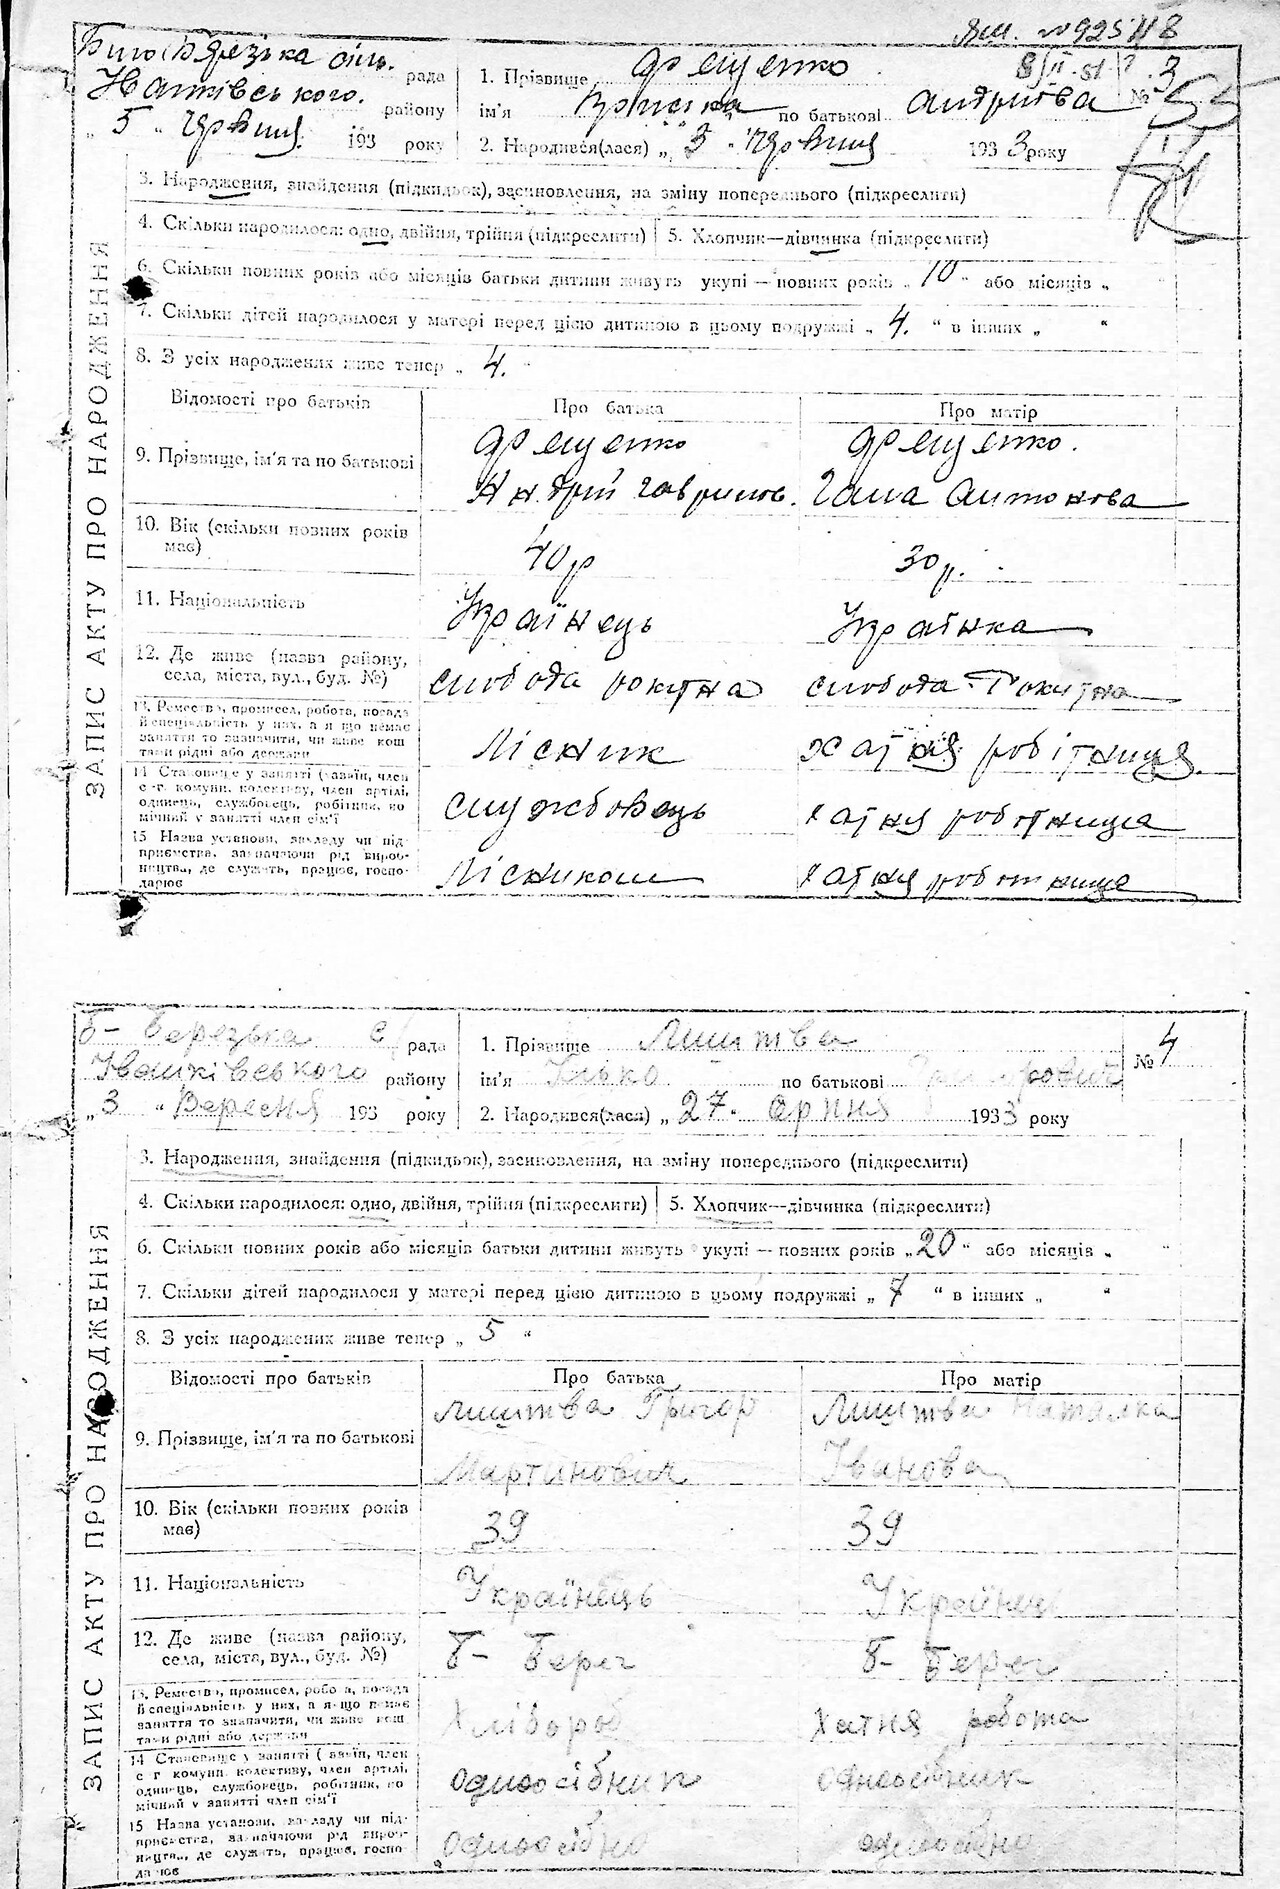 ЗАПИС АКТУ ПРО НАРОДЖЕННЯ
рада
районy
„ 5 “ Червня 193 року
1. Прізвище
ім'я по батькові Андриівва №
2. Народився(лася) „ 5 “ Червня 1933 року
3. Народження, знайдення (підкидьок), засиновлення, на зміну попереднього (підкреслити)
4. Скільки народилося: одно, двійня, трійня (підкреслити) 5. Хлопчик—дівчинка (підкреслити)
6. Скільки повних років або місяців батьки дитини живуть укупі — повних років „ 10 “ або місяців „ “
7. Скільки дітей народилося у матері перед цією дитиною в цьому подружжі „ 4. “ в інших „ “
8. З усіх народжених живе тепер „ 4. “
Відомості про батьків Про батька Про матір
9. Прізвище, ім'я та по батькові
Антонова
10. Вік (скільки повних років має) 40 р 30 р.
11. Національність Українець Українка
12. Де живе (назва району, села, міста, вул., буд. №) слобода рокитна слобода Рокитна
13. Ремество, промисел, робота, посада й спеціяльність у них, а якщо немає заняття то зазначити, чи живе кош тами рідні або держави Лісник хатня робітниця
14 Становище у занятті (хазяїн, член с-г комуни, колективу, член артілі, одинець, службовець, робітник, по мічний у занятті член сім'ї службовець хатня роботница
15 Назва установи, закладу чи під- приємства, зазначаючи рід вироб- ництва, де служить, працює, госпо- дарює Лісником хатня роботница
ЗАПИС АКТУ ПРО НАРОДЖЕННЯ
Б- Березька с/ рада
Іванківського району
„ 3 “ Вересня 193 року
1. Прізвище Лиштва № 4
ім'я Ілько по батькові
2. Народився(лася) „ 27 “ серпня 1933 року
3. Народження, знайдення (підкидьок), засиновлення, на зміну попереднього (підкреслити)
4. Скільки народилося: одно, двійня, трійня (підкреслити) 5. Хлопчик—дівчинка (підкреслити)
6. Скільки повних років або місяців батьки дитини живуть укупі — повних років „ 20 “ або місяців „ “
7. Скільки дітей народилося у матері перед цією дитиною в цьому подружжі „ 7 “ в інших „ “
8. З усіх народжених живе тепер „ 5 “
Відомості про батьків Про батька Про матір
9. Прізвище, ім'я та по батькові Лиштва Григор Лиштва Наталка
Мартинович Іванова
10. Вік (скільки повних років має) 39 39
11. Національність Українець
12. Де живе (назва району, села, міста, вул., буд. №) Б- Берег Б- Берег
13. Ремество, промисел, робота, посада й спеціяльність у них, а якщо немає заняття то зазначити, чи живе кош тами рідні або держави Хлібороб Хатня робота
14 Становище у занятті (хазяїн, член с-г комуни, колективу, член артілі, одинець, службовець, робітник, по мічний у занятті член сім'ї одноосібник одноосібник
15 Назва установи, закладу чи під- приємства, зазначаючи рід вироб- ництва, де служить, працює, госпо- дарює одноосібно одноосібно